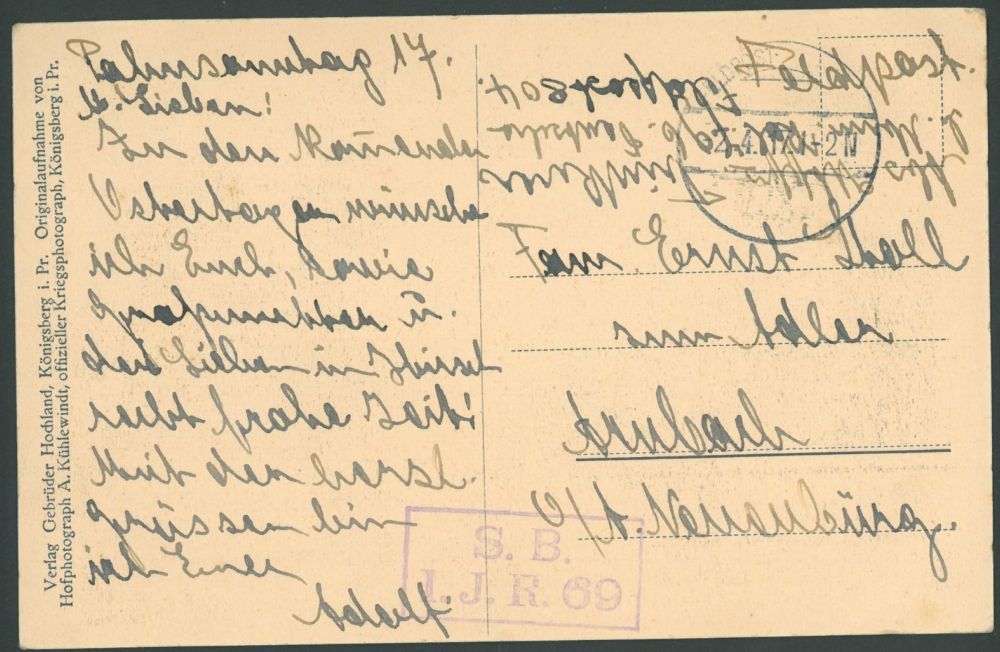 Palmsonntag 17.
M. Lieben!
Zu den kommenden
Ostertagen wünsche
ich Euch, sowie
Grossmutter u.
den Lieben in
recht frohe Zeit!
Mit den herzl.
Grüssen bin
ich Euer
Adolf
Feldpost.
Feldpost
2.4.17
Fam. Ernst Stoll
zum Adler
Arnbach
O/A. Neuenbürg.
S. B.
I. J. R. 69
Verlag Gebrüder Hochland, Königsberg i. Pr. Originalaufnahme von
Hofphotograph A. Kühlewindt, offizieller Kriegsphotograph, Königsberg i. Pr.